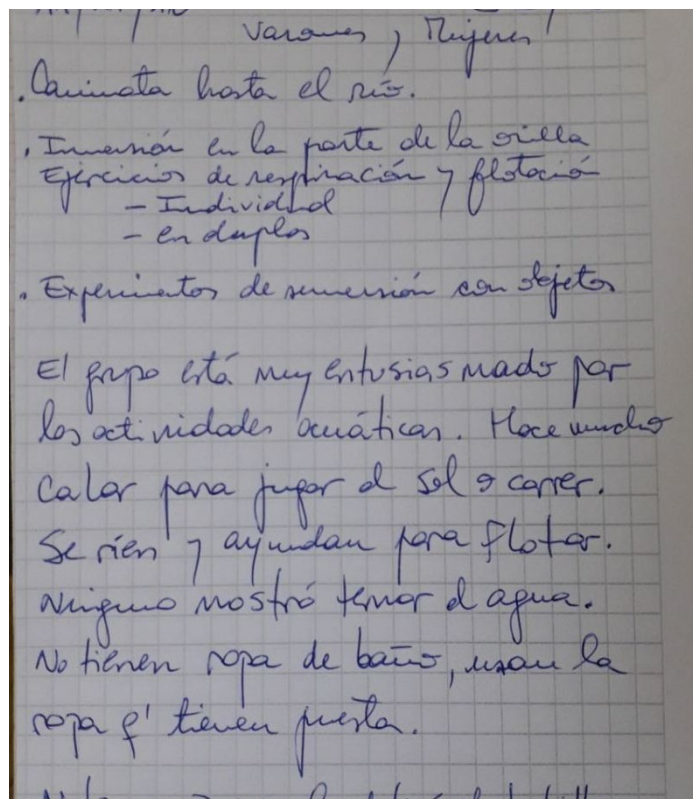 Varones y Mujeres
. Caminata hasta el río.
. Inmersión en la parte de la orilla
Ejercicios de respiración y flotación
- Individual
- en duplas
. Experimentos de inmersión con objetos
El grupo está muy entusiasmado por
las actividades acuáticas. Hace mucho
calor para jugar al sol o correr.
Se ríen y ayudan para flotar.
Ninguno mostró temor al agua.
No tienen ropa de baño, usan la
ropa q' tienen puesta.